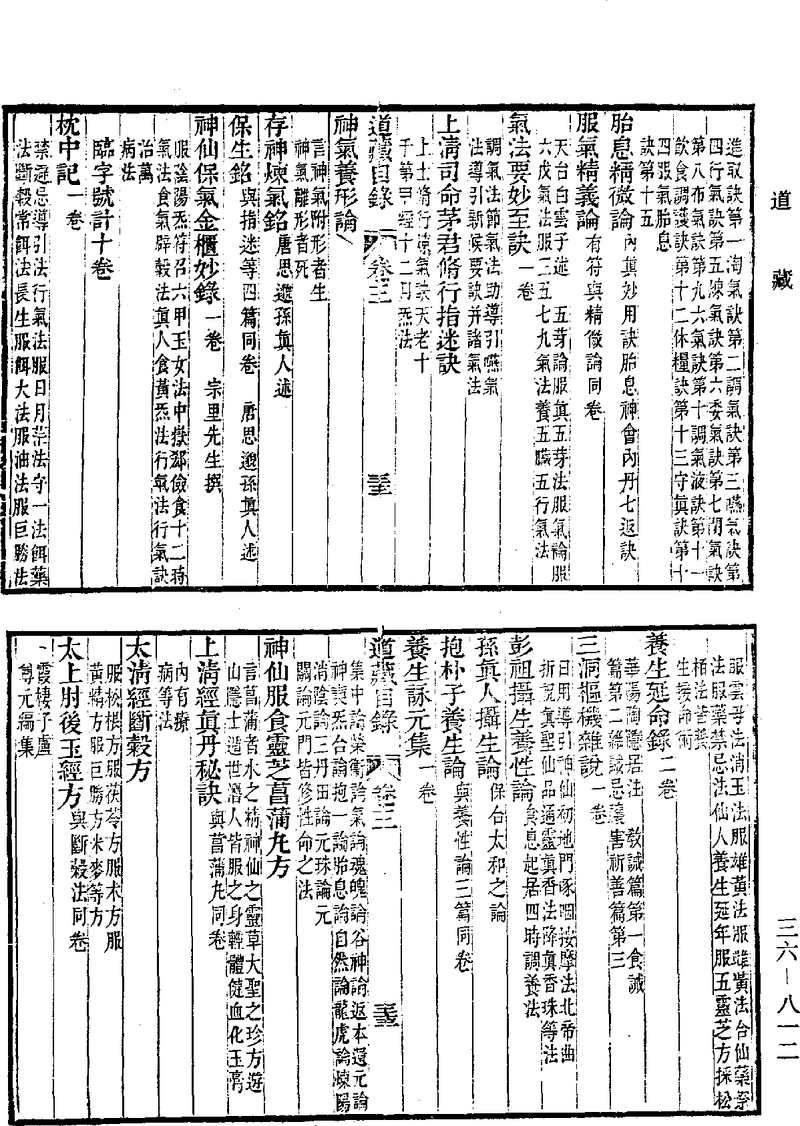 道藏
進取訣第一淘氣訣第二調氣訣第三嚥氣訣第
四行氣訣第五煉氣訣第六委氣訣第七閉氣訣
第八布氣訣第九六氣訣第十調氣液訣第十一
飲食調護訣第十二休糧訣第十三守真訣第十
四服氣胎息
訣第十五
胎息精微論
內真妙用訣胎息神會內丹七返訣
服氣精義論
有符與精微論同卷
天台白雲子述 五芽論服真五芽法服氣論服
六戊氣法服三五七九氣法養五臟五行氣法
氣法要妙至訣一卷
調氣法節氣法助導引嚥氣
法導引新候要訣并諸氣法
上清司命茅君脩行指迷訣
上士脩行凉氣訣天老十
干第甲經十二月炁法
道藏目錄 卷三 三十三
神氣養形論
言神氣附形者生
神氣離形者死
存神煉氣銘
唐思邈孫真人述
保生銘
與指迷等四篇同卷 唐思邈孫真人述
神仙保氣金櫃妙錄一卷 京里先生撰
服陰陽炁符召六甲玉女法中嶽郄儉食十二時
氣法食氣辟穀法真人食黃炁法行氣法行氣訣
治萬
病法
臨字號計十卷
枕中記一卷
禁避忌導引法行氣法服日月芒法守一法餌藥
法斷穀常餌法長生服餌大法服油法服巨勝法
服雲母法消玉法服雄黃法服雌黃法合仙藥祭
法服藥禁忌法仙人養生延年服五靈芝方採松
栢法苦養
生接命術
養生延命錄二卷
華陽陶隱居法 教誡篇第一食誡
篇第二雜誡忌禳害祈善篇第三
三洞樞機雜說一卷
日用導引神仙初地門啄咽按摩法北帝曲
折視真聖仙品通靈真香法降真香珠等法
彭祖攝生養性論
食息起居四時調養法
孫真人攝生論
保合太和之論
抱朴子養生論
與養性論三篇同卷
養生詠元集一卷
道藏目錄 卷三 三十三
集中論榮衛論氣論魂魄論谷神論返本還元論
神契炁合論抱一論胎息論自然論龍虎論煉陽
消陰論三丹田論元珠論元
關論元門論皆修性命之法
神仙服食靈芝菖蒲九方
言菖蒲者水之精神仙之靈草大聖之珍方遊
山隱士遁世潛人皆服之身輕體健血化玉膏
上清經真丹秘訣
與菖蒲九同卷
內有療
病等法
太清經斷穀方
服松根方服茯苓方服术方服
黃精方服巨勝方米麥等方
太上肘後玉經方
與斷穀法同卷
霞棲子盧
尊元編集
三六－八一二